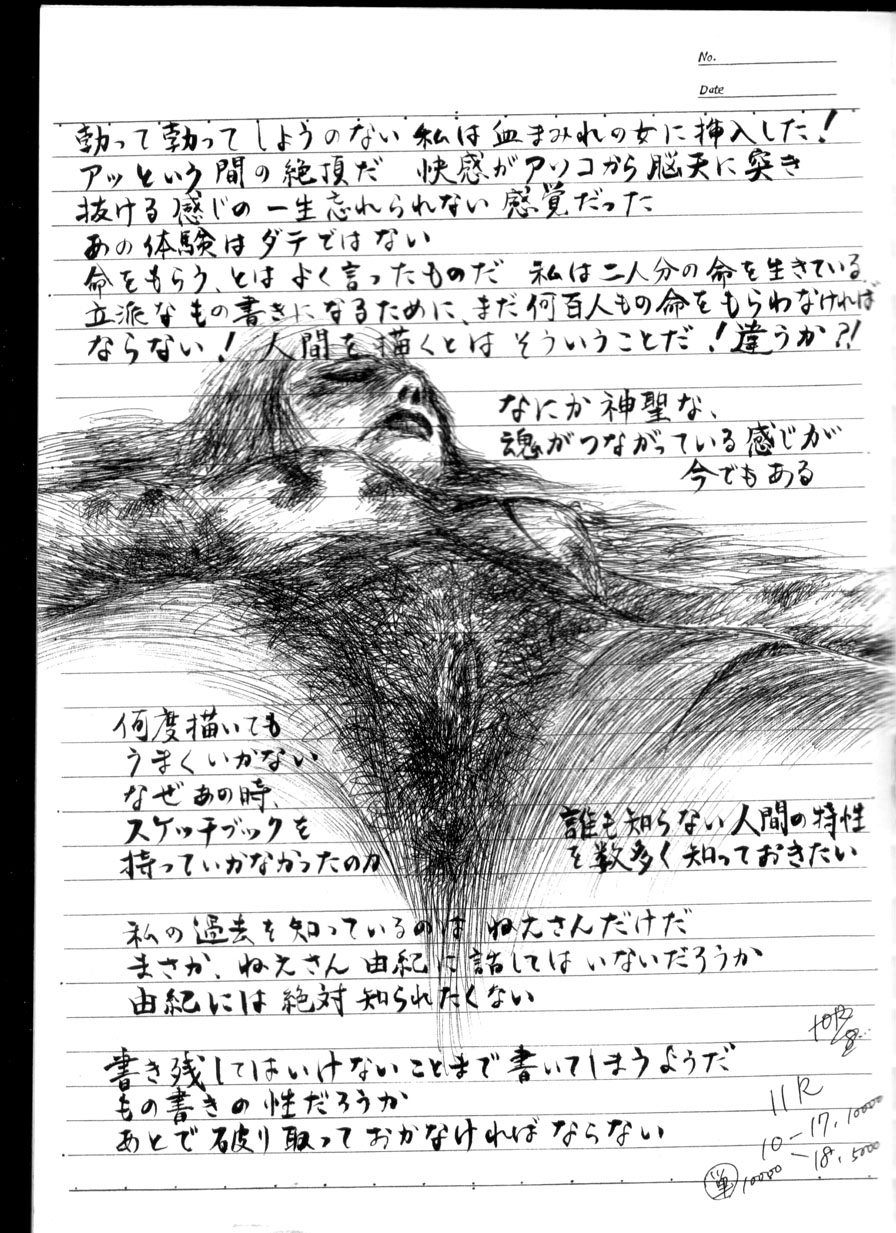 No.
Date
勃って勃ってしようのない 私は血まみれの女に挿入した!
アッという間の絶頂だ 快感がアソコから脳天に突き
抜ける感じの一生忘れられない感覚だった
あの体験はダテではない
命をもらう、とはよく言ったものだ 私は二人分の命を生きている
立派なもの書きになるために、まだ何百人もの命をもらわなければ
ならない! 人間を描くとはそういうことだ!違うか?!
なにか神聖な、
魂がつながっている感じが
今でもある
何度描いても
うまくいかない
なぜあの時、
スケッチブックを
持っていかなかったのカ
誰も知らない人間の特性
を数多く知っておきたい
私の過去を知っているのは ねえさんだけだ
まさか、ねえさん 由紀に話してはいないだろうか
由紀には絶対知られたくない
書き残してはいけないことまで書いてしまうようだ
もの書きの性だろうか
あとで破り取っておかなければならない
11R
10-17, 10000
-18, 5000
単 10000